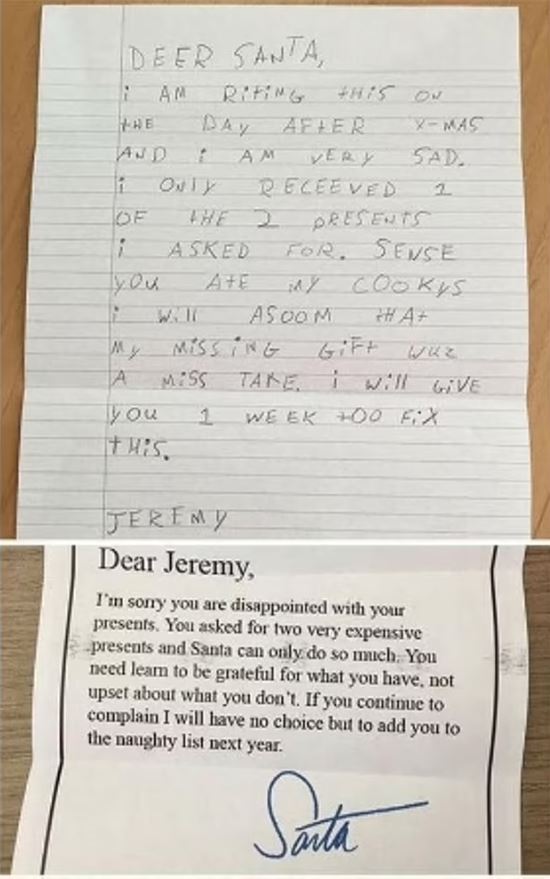 DEER SANTA,
i AM RiTiNG tHiS ON
tHE DAY AFtER X-MAS
AND i AM VERY SAD.
i ONLY RECEEVED 1
OF tHE 2 PRESENTS
i ASKED FOR. SENSE
YOU AtE MY COOKYS
i Will ASOOM tHAt
MY MiSSiNG GiFt WUZ
A MiSS TAKE. i Will GiVE
YOU 1 WEEK tOO FiX
tHiS.
JEREMY
Dear Jeremy,
I'm sorry you are disappointed with your
presents. You asked for two very expensive
presents and Santa can only do so much. You
need learn to be grateful for what you have, not
upset about what you don't. If you continue to
complain I will have no choice but to add you to
the naughty list next year.
Santa